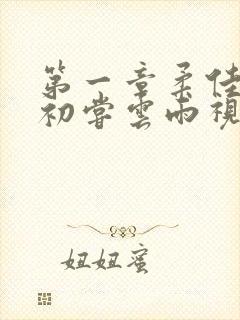 第一章柔佳
初尝云雨视
妞妞蜜